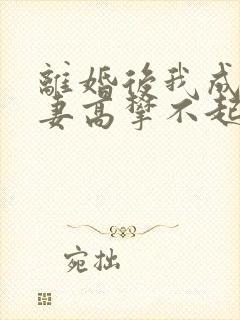 離婚後我成
妻高攀不起
宛拙